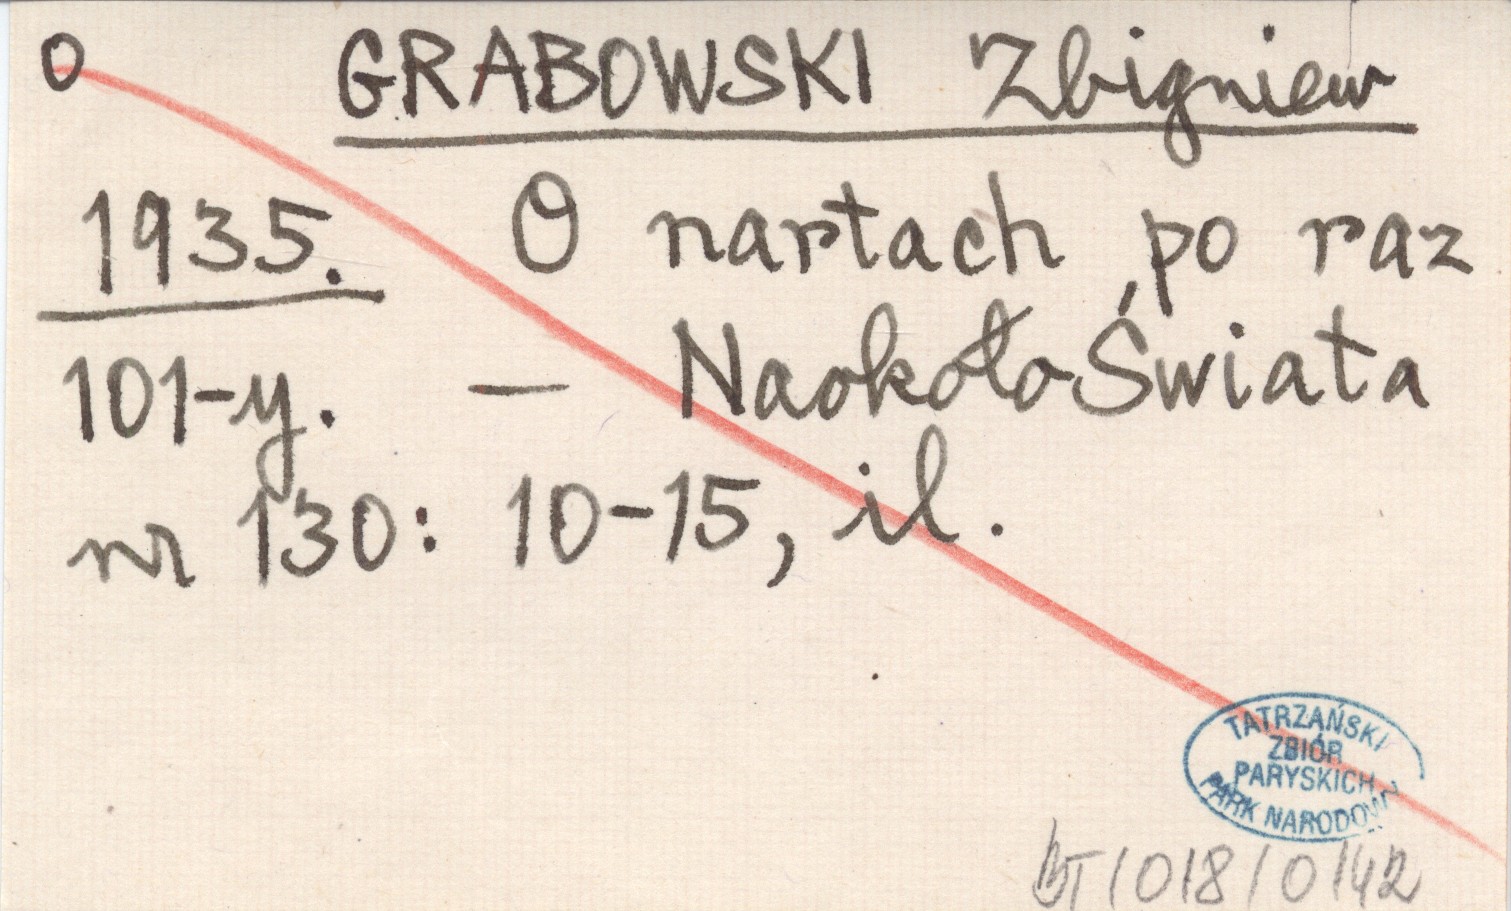 O GRABOWSKI Zbigniew
1935. O nartach po raz
101-y. — Naokoło Świata
nr 130: 10-15, il.
TATRZAŃSKI
ZBIÓR
PARYSKICH
PARK NARODOWY
BT/018/0142